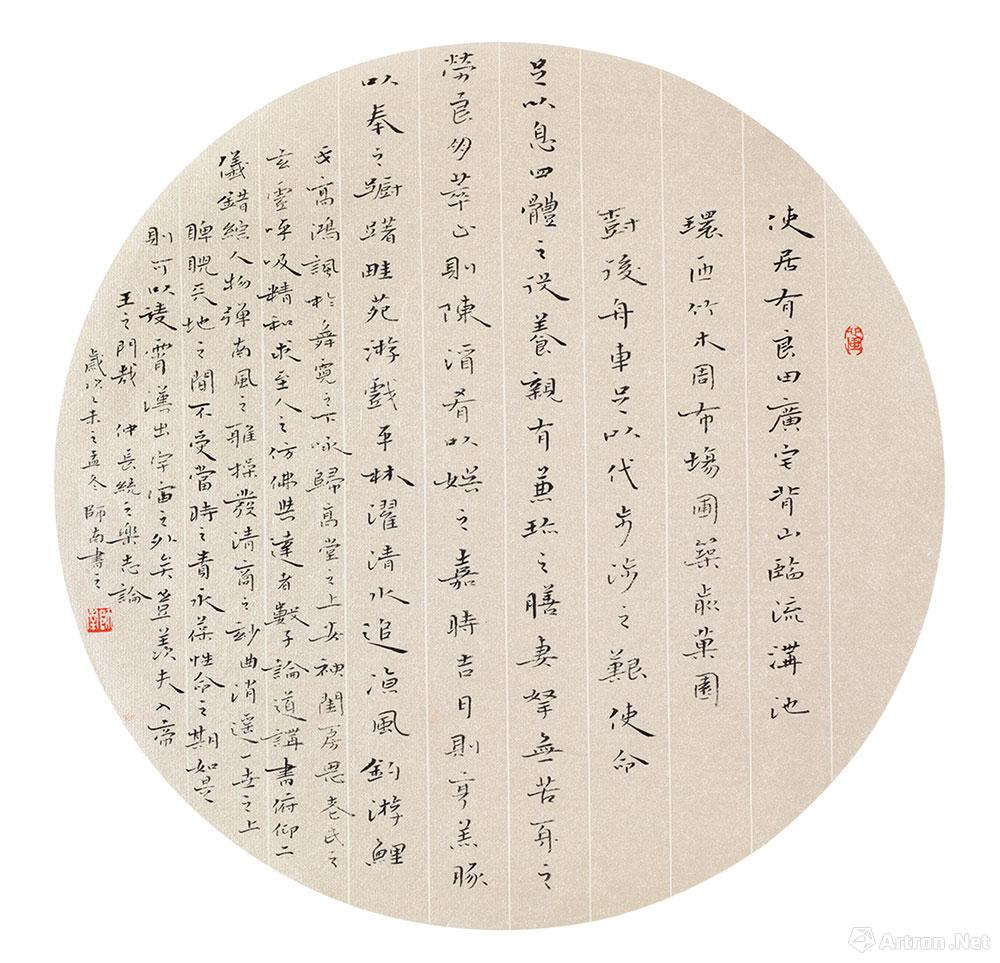 使居有良田廣宅背山臨流溝池
環匝竹木周布場圃築前菓園
樹後舟車足以代步涉之艱使命
足以息四體之役養親有兼珍之膳妻孥無苦身之
勞良朋萃止則陳酒肴以娛之嘉時吉日則亨羔豚
以奉之躊躇畦苑游戲平林濯清水追涼風釣游鯉
弋高鴻諷於舞雩之下詠歸高堂之上安神閨房思老氏之
玄虛呼吸精和求至人之仿佛與達者數子論道講書俯仰二
儀錯綜人物彈南風之雅操發清商之妙曲消遙一世之上
睥睨天地之間不受當時之責永葆性命之期如是
則可以凌霄漢出宇宙之外矣豈羨夫入帝
王之門哉 仲長統之樂志論
歲次乙未之孟冬師南書之
Artron.Net